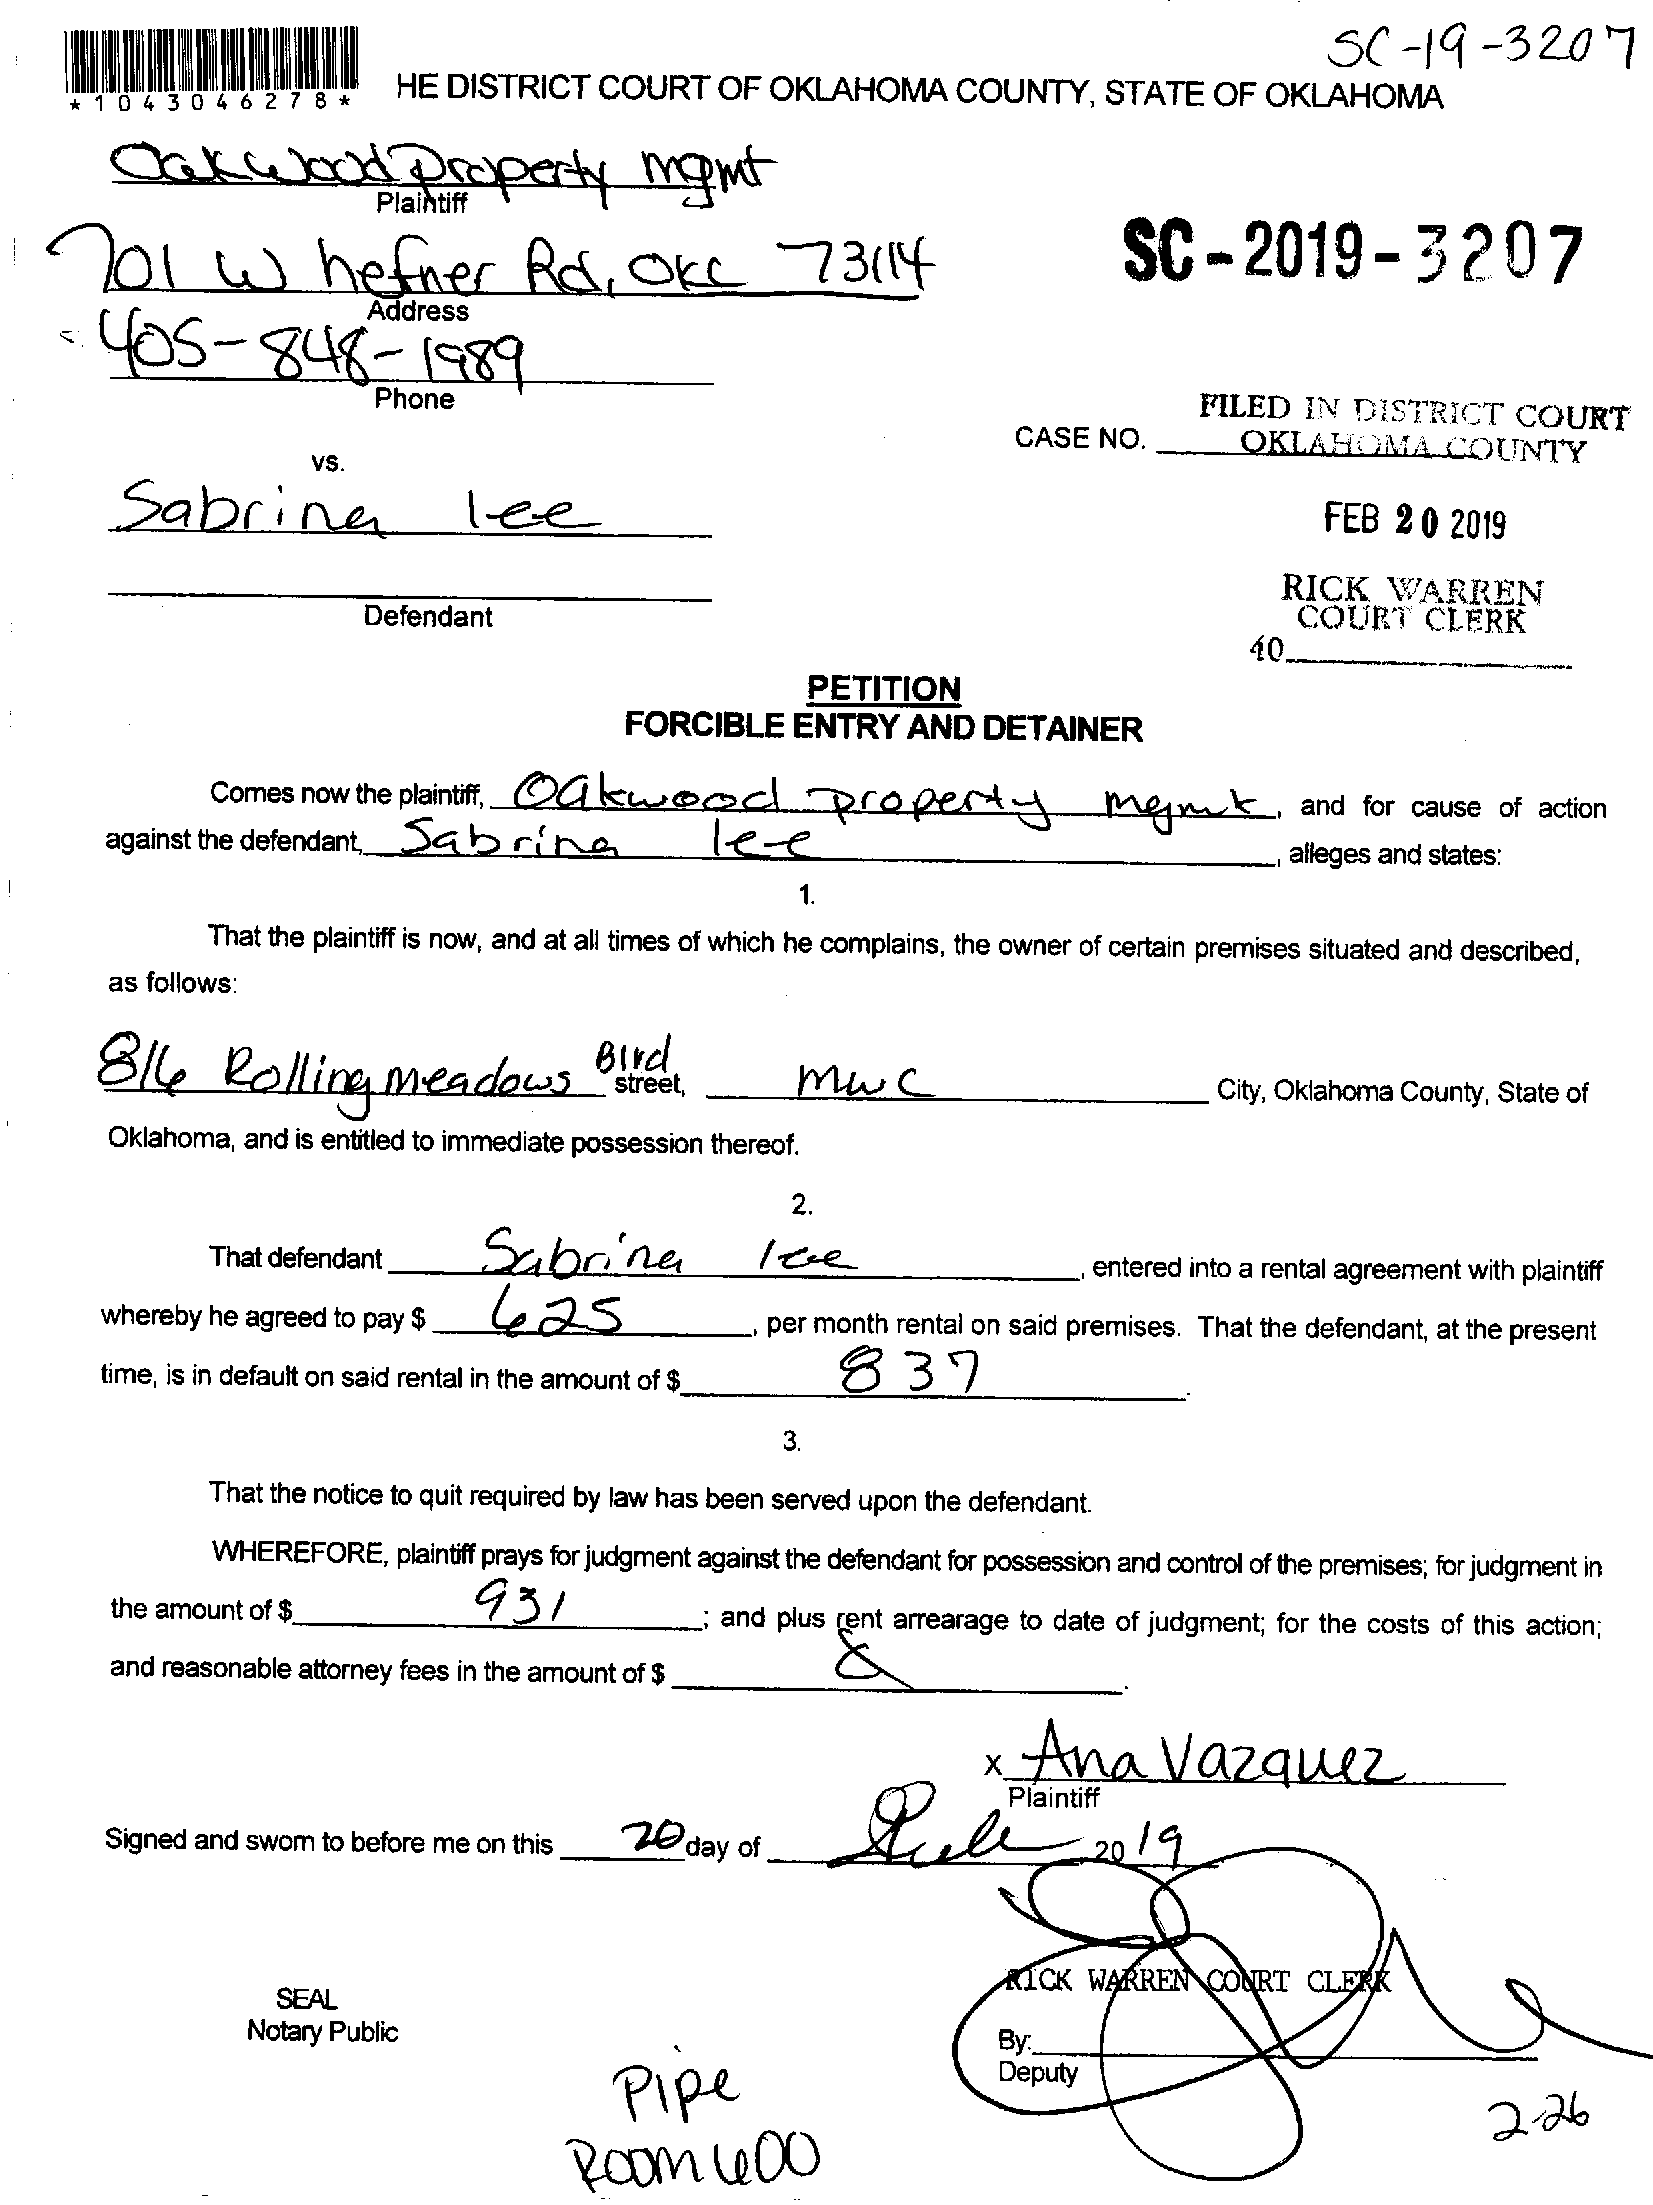 SC-19-3207
*1043046278*
HE DISTRICT COURT OF OKLAHOMA COUNTY, STATE OF OKLAHOMA
Oakwood Property mgmt
Plaintiff
701 W hefner Rd, OKC 73114
Address
SC-2019-3207
405-848-1989
Phone
FILED IN DISTRICT COURT
CASE NO. OKLAHOMA COUNTY
vs.
Sabrina lee
FEB 20 2019
Defendant
RICK WARREN
COURT CLERK
40
PETITION
FORCIBLE ENTRY AND DETAINER
Comes now the plaintiff, Oakwood property mgmt, and for cause of action
against the defendant, Sabrina lee, alleges and states:
1.
That the plaintiff is now, and at all times of which he complains, the owner of certain premises situated and described,
as follows:
816 Rolling meadows Blvd street, mwc City, Oklahoma County, State of
Oklahoma, and is entitled to immediate possession thereof.
2.
That defendant Sabrina lee, entered into a rental agreement with plaintiff
whereby he agreed to pay $ 625, per month rental on said premises. That the defendant, at the present
time, is in default on said rental in the amount of $ 837.
3.
That the notice to quit required by law has been served upon the defendant.
WHEREFORE, plaintiff prays for judgment against the defendant for possession and control of the premises; for judgment in
the amount of $ 931; and plus rent arrearage to date of judgment; for the costs of this action;
and reasonable attorney fees in the amount of $
x Ana Vazquez
Plaintiff
Signed and sworn to before me on this 20 day of 2019
RICK WARREN COURT CLERK
SEAL
Notary Public
By:
Deputy
Pipe
Room 600
2-26